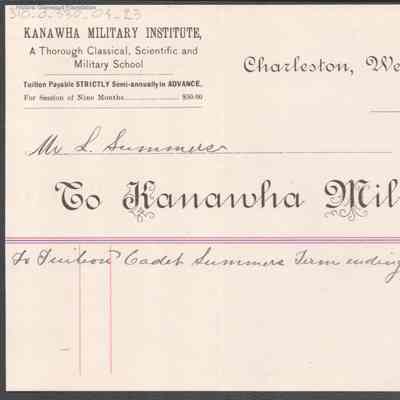 310.0.330.04.23
KANAWHA MILITARY INSTITUTE,
A Thorough Classical, Scientific and
Military School
Tuition Payable STRICTLY Semi-annually in ADVANCE.
For Session of Nine Months $50.00
Charleston, We
Mr L. Summers
To Kanawha Mil
To Tuition Cadet Summers Term ending